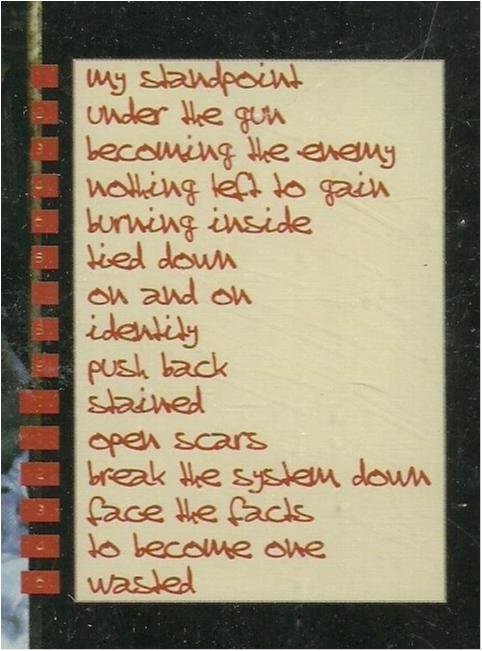 my standpoint
under the gun
becoming the enemy
nothing left to gain
burning inside
tied down
on and on
identity
push back
stained
open scars
break the system down
face the facts
to become one
wasted